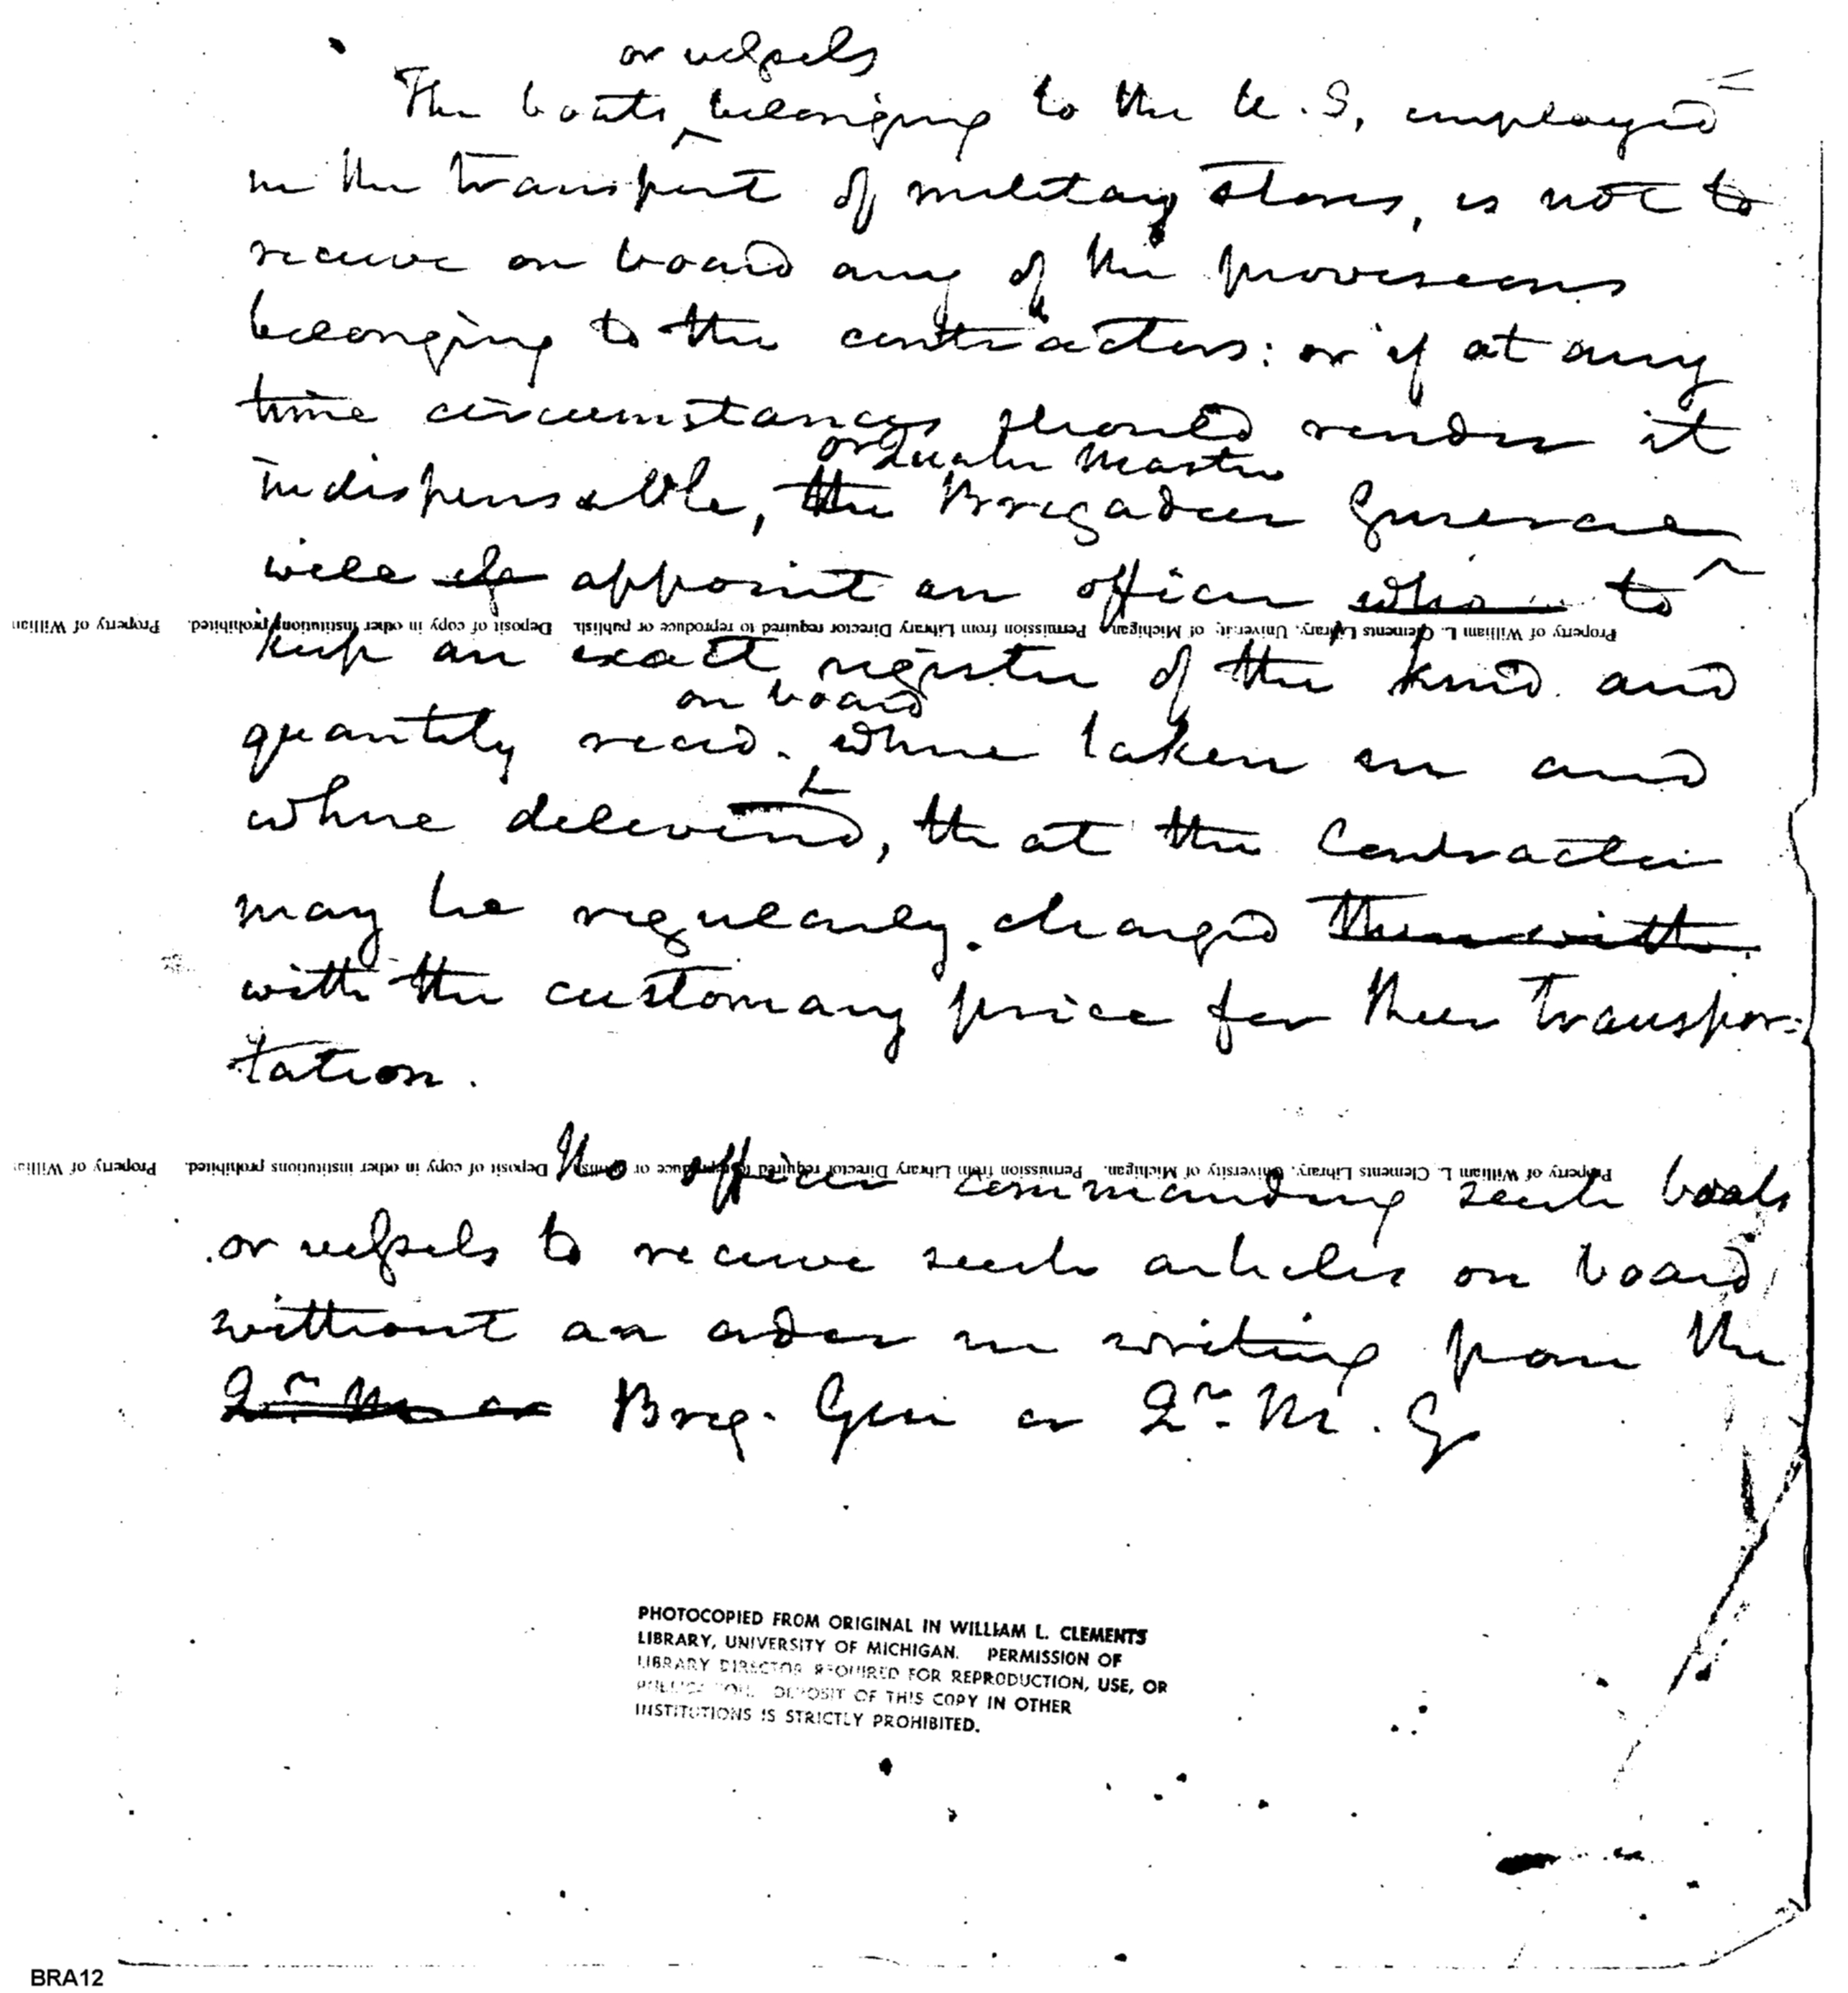 or vessels
The boats belonging to the U.S. employed
in the transport of military stores, is not to
receive on board any of the provisions
belonging to the contractors: or if at any
time circumstances should render it
or Quarter Master
indispensable, the Brigadier General
will appoint an officer who to
Property of William L. Clements Library, University of Michigan. Permission from Library Director required to reproduce or publish. Deposit of copy in other institutions prohibited. Property of William
keep an exact register of the kind and
on board
quantity recd. where taken in and
where delivered, that the Contractor
may be regularly charged therewith
with the customary price for their transpor-
tation.
Property of William L. Clements Library, University of Michigan. Permission from Library Director required to reproduce or publish. Deposit of copy in other institutions prohibited. Property of Willia
No officer commanding such boats
or vessels to receive such articles on board
without an order in writing from the
Qr. M or Brig. Gen or Qr. M. G
PHOTOCOPIED FROM ORIGINAL IN WILLIAM L. CLEMENTS
LIBRARY, UNIVERSITY OF MICHIGAN. PERMISSION OF
LIBRARY DIRECTOR REQUIRED FOR REPRODUCTION, USE, OR
PUBLICATION. DEPOSIT OF THIS COPY IN OTHER
INSTITUTIONS IS STRICTLY PROHIBITED.
BRA12